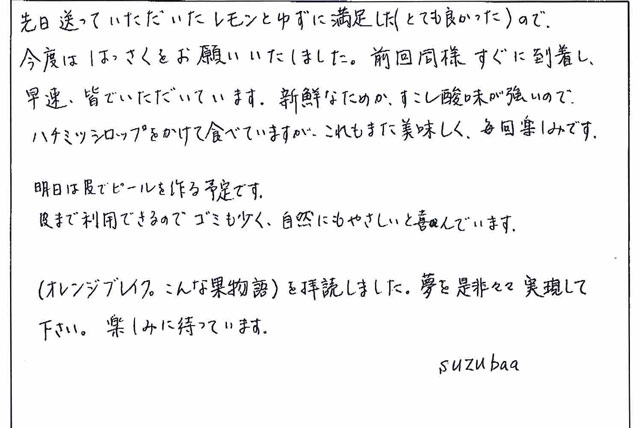 先日送っていただいたレモンとゆずに満足した(とても良かった)ので、
今度は はっさくをお願いいたしました。前回同様 すぐに到着し、
早速、皆でいただいています。新鮮なためか、すこし酸味が強いので、
ハチミツシロップをかけて食べていますが、これもまた美味しく、毎回楽しみです。
明日は皮でピールを作る予定です。
皮まで利用できるので ゴミも少く、自然にもやさしいと喜んでいます。
(オレンジブレイク。こんな果物語)を拝読しました。夢を是非々々 実現して
下さい。 楽しみに待っています。
suzubaa